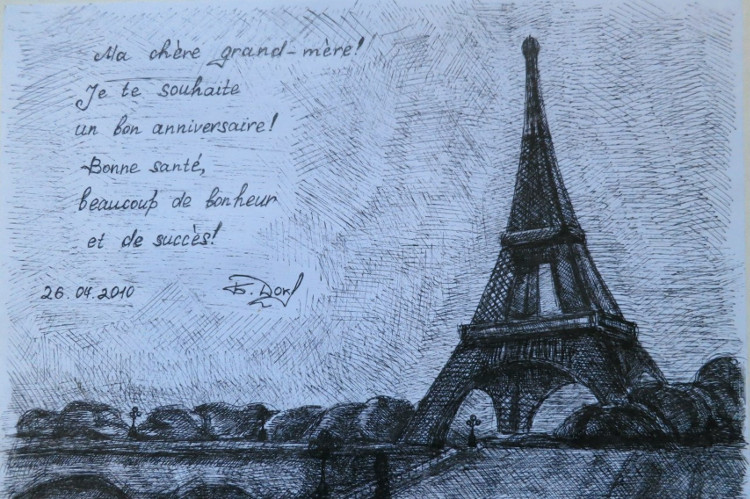 Ma chère grand-mère!
Je te souhaite
un bon anniversaire!
Bonne santé,
beaucoup de bonheur
et de succès!
26.04.2010